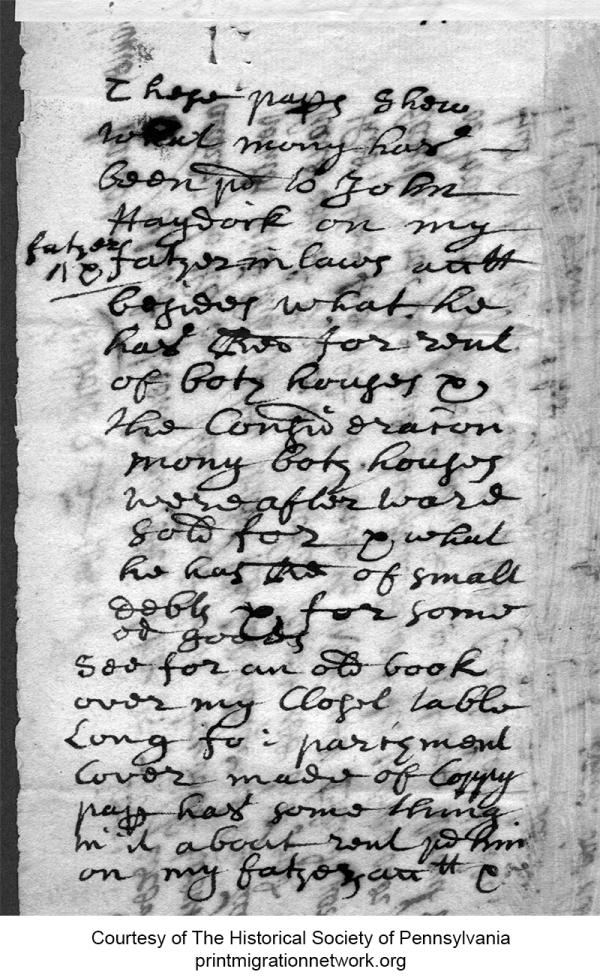 These paps shew
what mony has
been pd to John
Haydock on my
father in laws acctt
besides what he
has for rent
of both houses &
the Consideracon
mony both houses
were after ward
Sold for & what
he has of small
debts & for some
od goods
See for an old book
over my Closet table
Long fo: parchment
Cover made of Coppy
pap has some thing
in it about rent pd him
on my fathers acctt &
father
Courtesy of The Historical Society of Pennsylvania
printmigrationnetwork.org